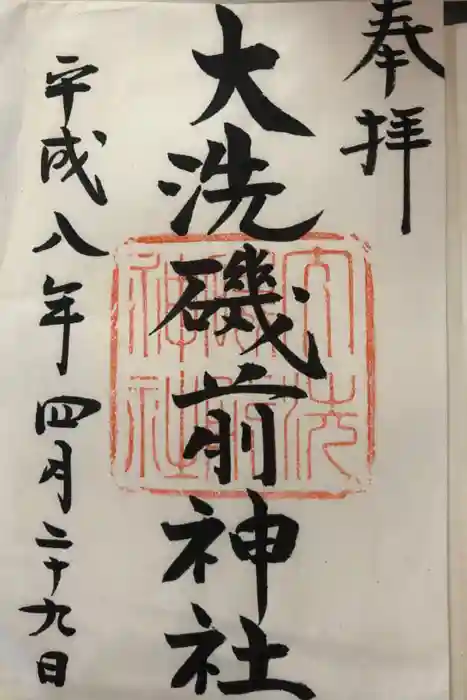 奉拝
大洗磯前神社
平成八年四月二十九日
大洗
磯前
神社